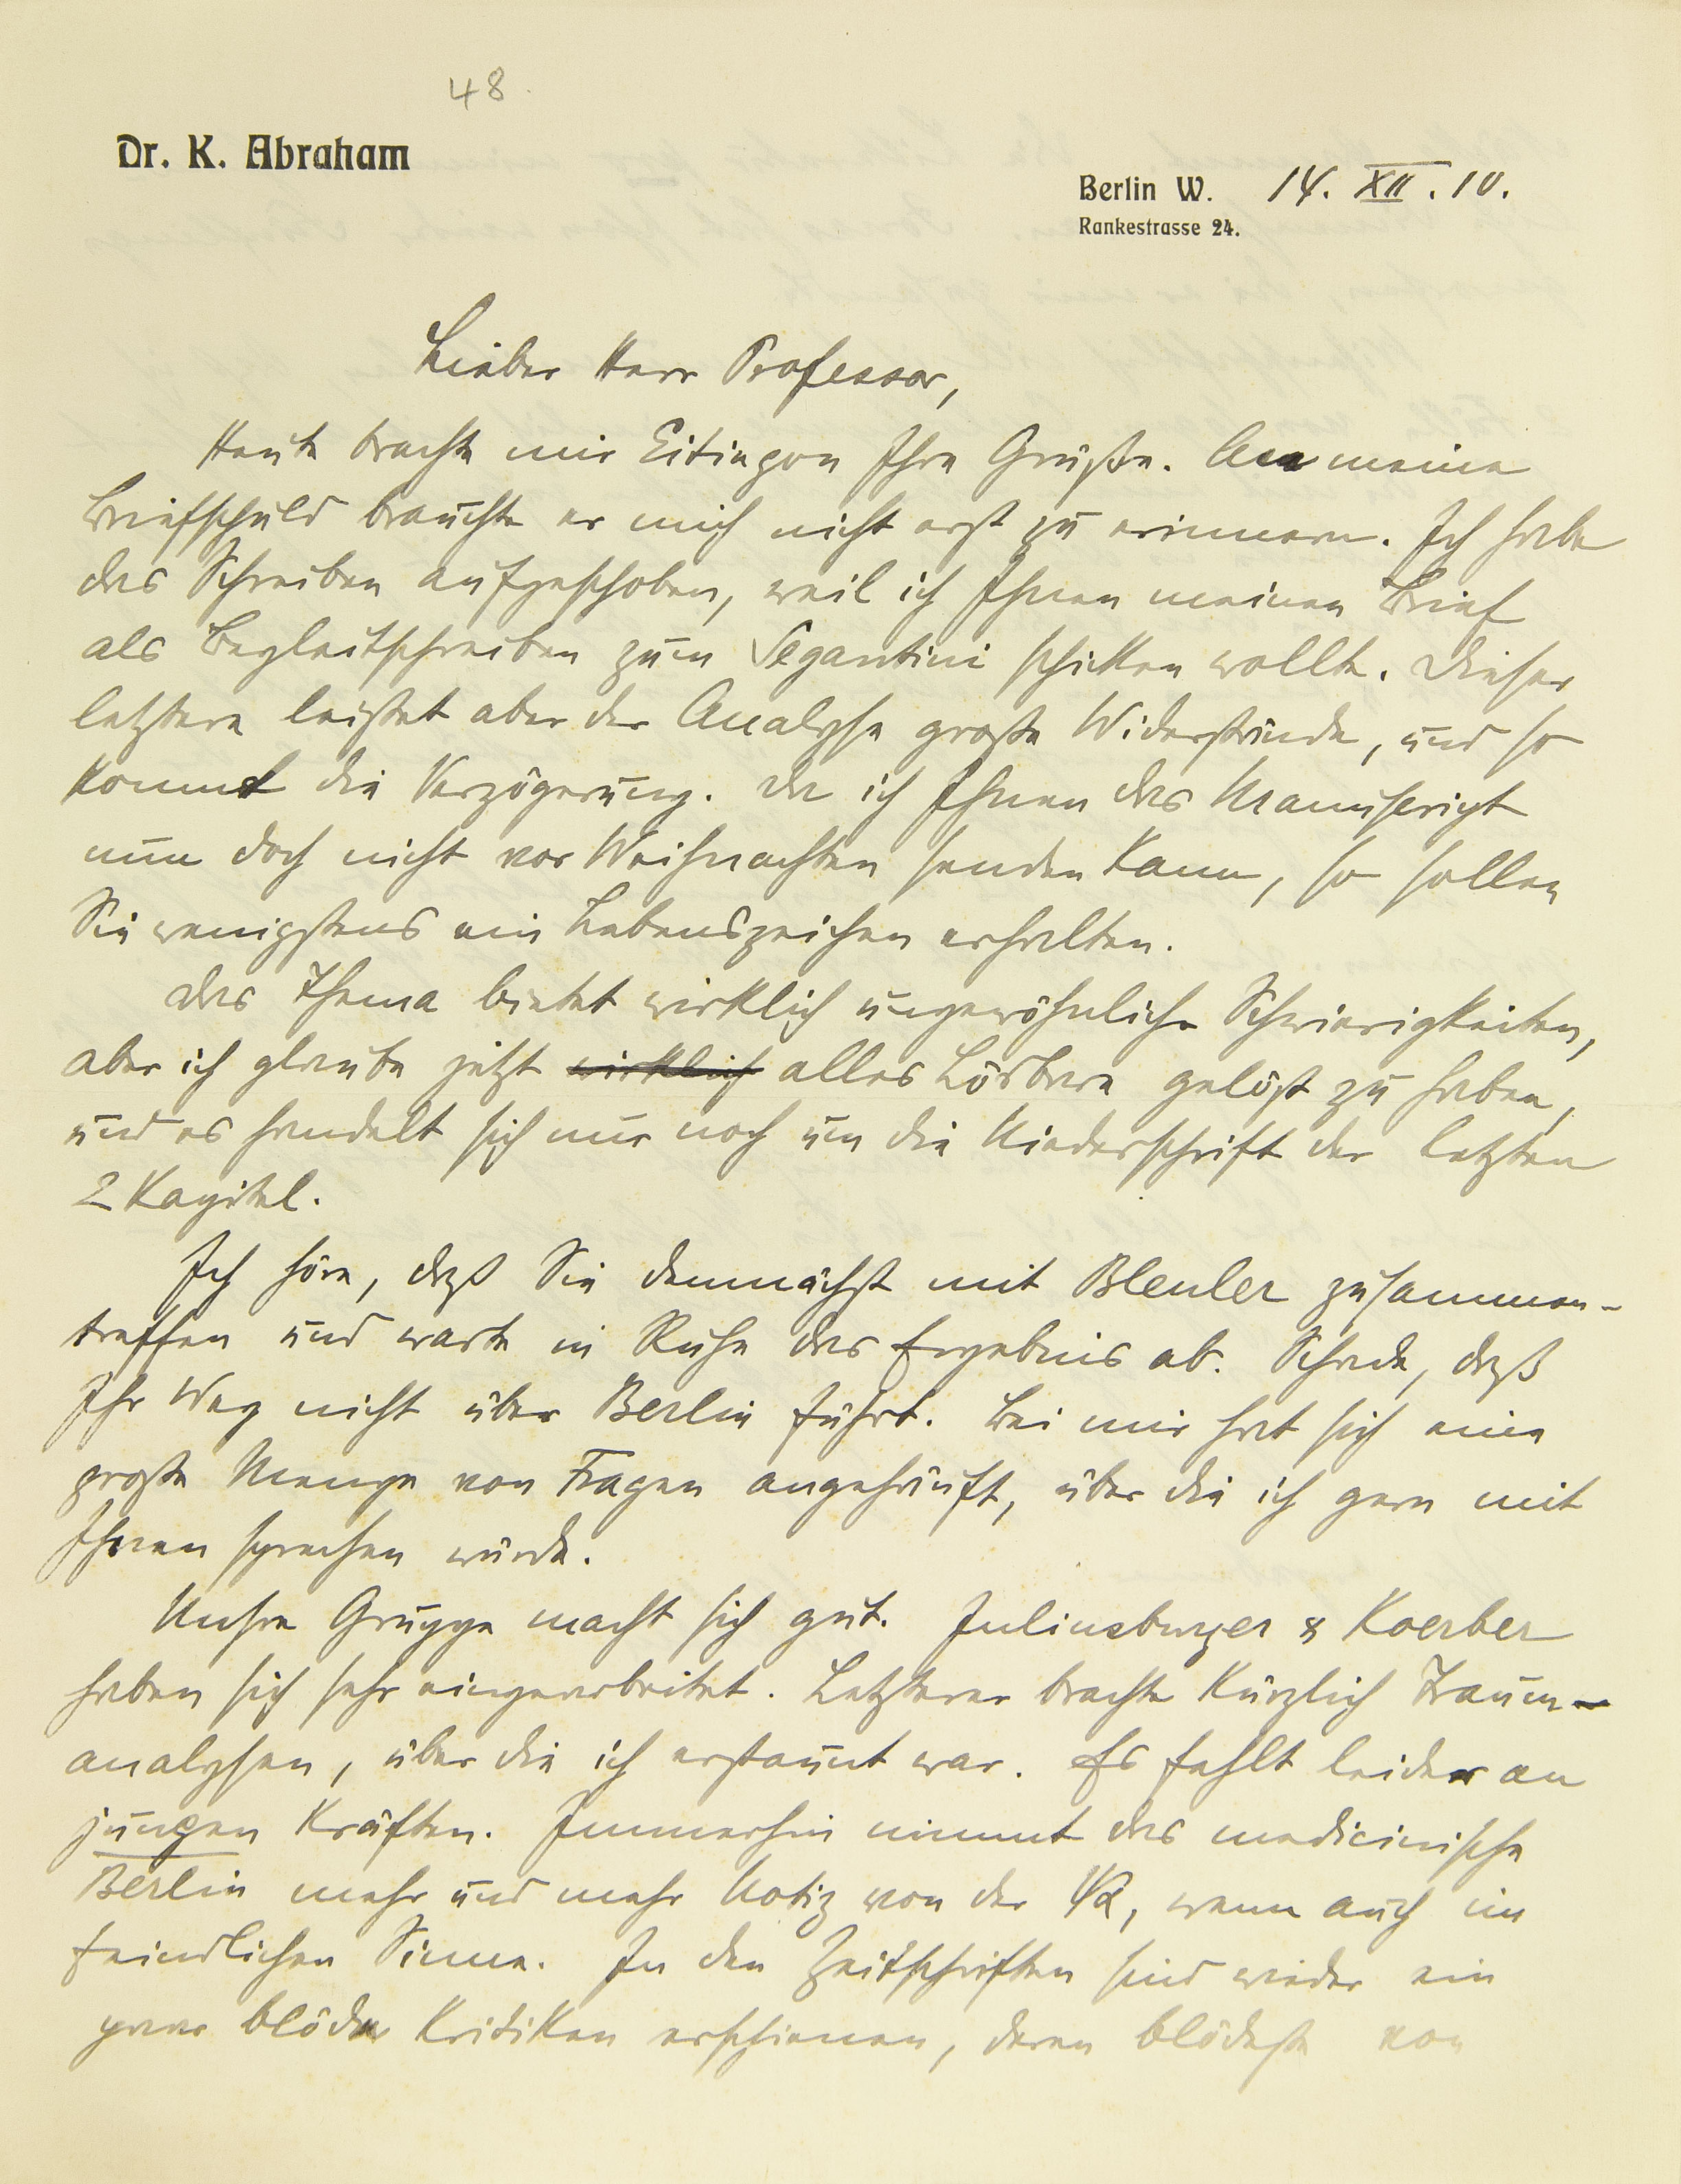 48.
Dr. K. Abraham
Berlin W. 14. XII. 10.
Rankestrasse 24.
Lieber Herr Professor,
Heute brachte mir Eitingon Ihre Grüße. An meine
Briefschuld brauchte er mich nicht erst zu erinnern. Ich habe
das Schreiben aufgeschoben, weil ich Ihnen meinen Brief
als Begleitschreiben zum Segantini schicken wollte. Dieser
letztere leistet aber der Analyse große Widerstände, und so
kommt die Verzögerung. Da ich Ihnen das Manuscript
nun doch nicht vor Weihnachten senden kann, so sollen
Sie wenigstens ein Lebenszeichen erhalten.
Das Thema bietet wirklich ungewöhnliche Schwierigkeiten,
aber ich glaube jetzt wirklich alles Lösbare gelöst zu haben,
und es handelt sich nur noch um die Niederschrift der letzten
2 Kapitel.
Ich höre, daß Sie demnächst mit Bleuler zusammen-
treffen und warte in Ruhe das Ergebnis ab. Schade, daß
Ihr Weg nicht über Berlin führt. Bei mir hat sich eine
große Menge von Fragen angehäuft, über die ich gern mit
Ihnen sprechen würde.
Unsre Gruppe macht sich gut. Juliusburger & Koerber
haben sich sehr eingearbeitet. Letzterer brachte kürzlich Traum-
analysen, über die ich erstaunt war. Es fehlt leider an
jungen Kräften. Immerhin nimmt das medicinische
Berlin mehr und mehr Notiz von der ΨΑ, wenn auch im
feindlichen Sinne. In den Zeitschriften sind wieder ein
paar blöde Kritiken erschienen, deren blödeste von